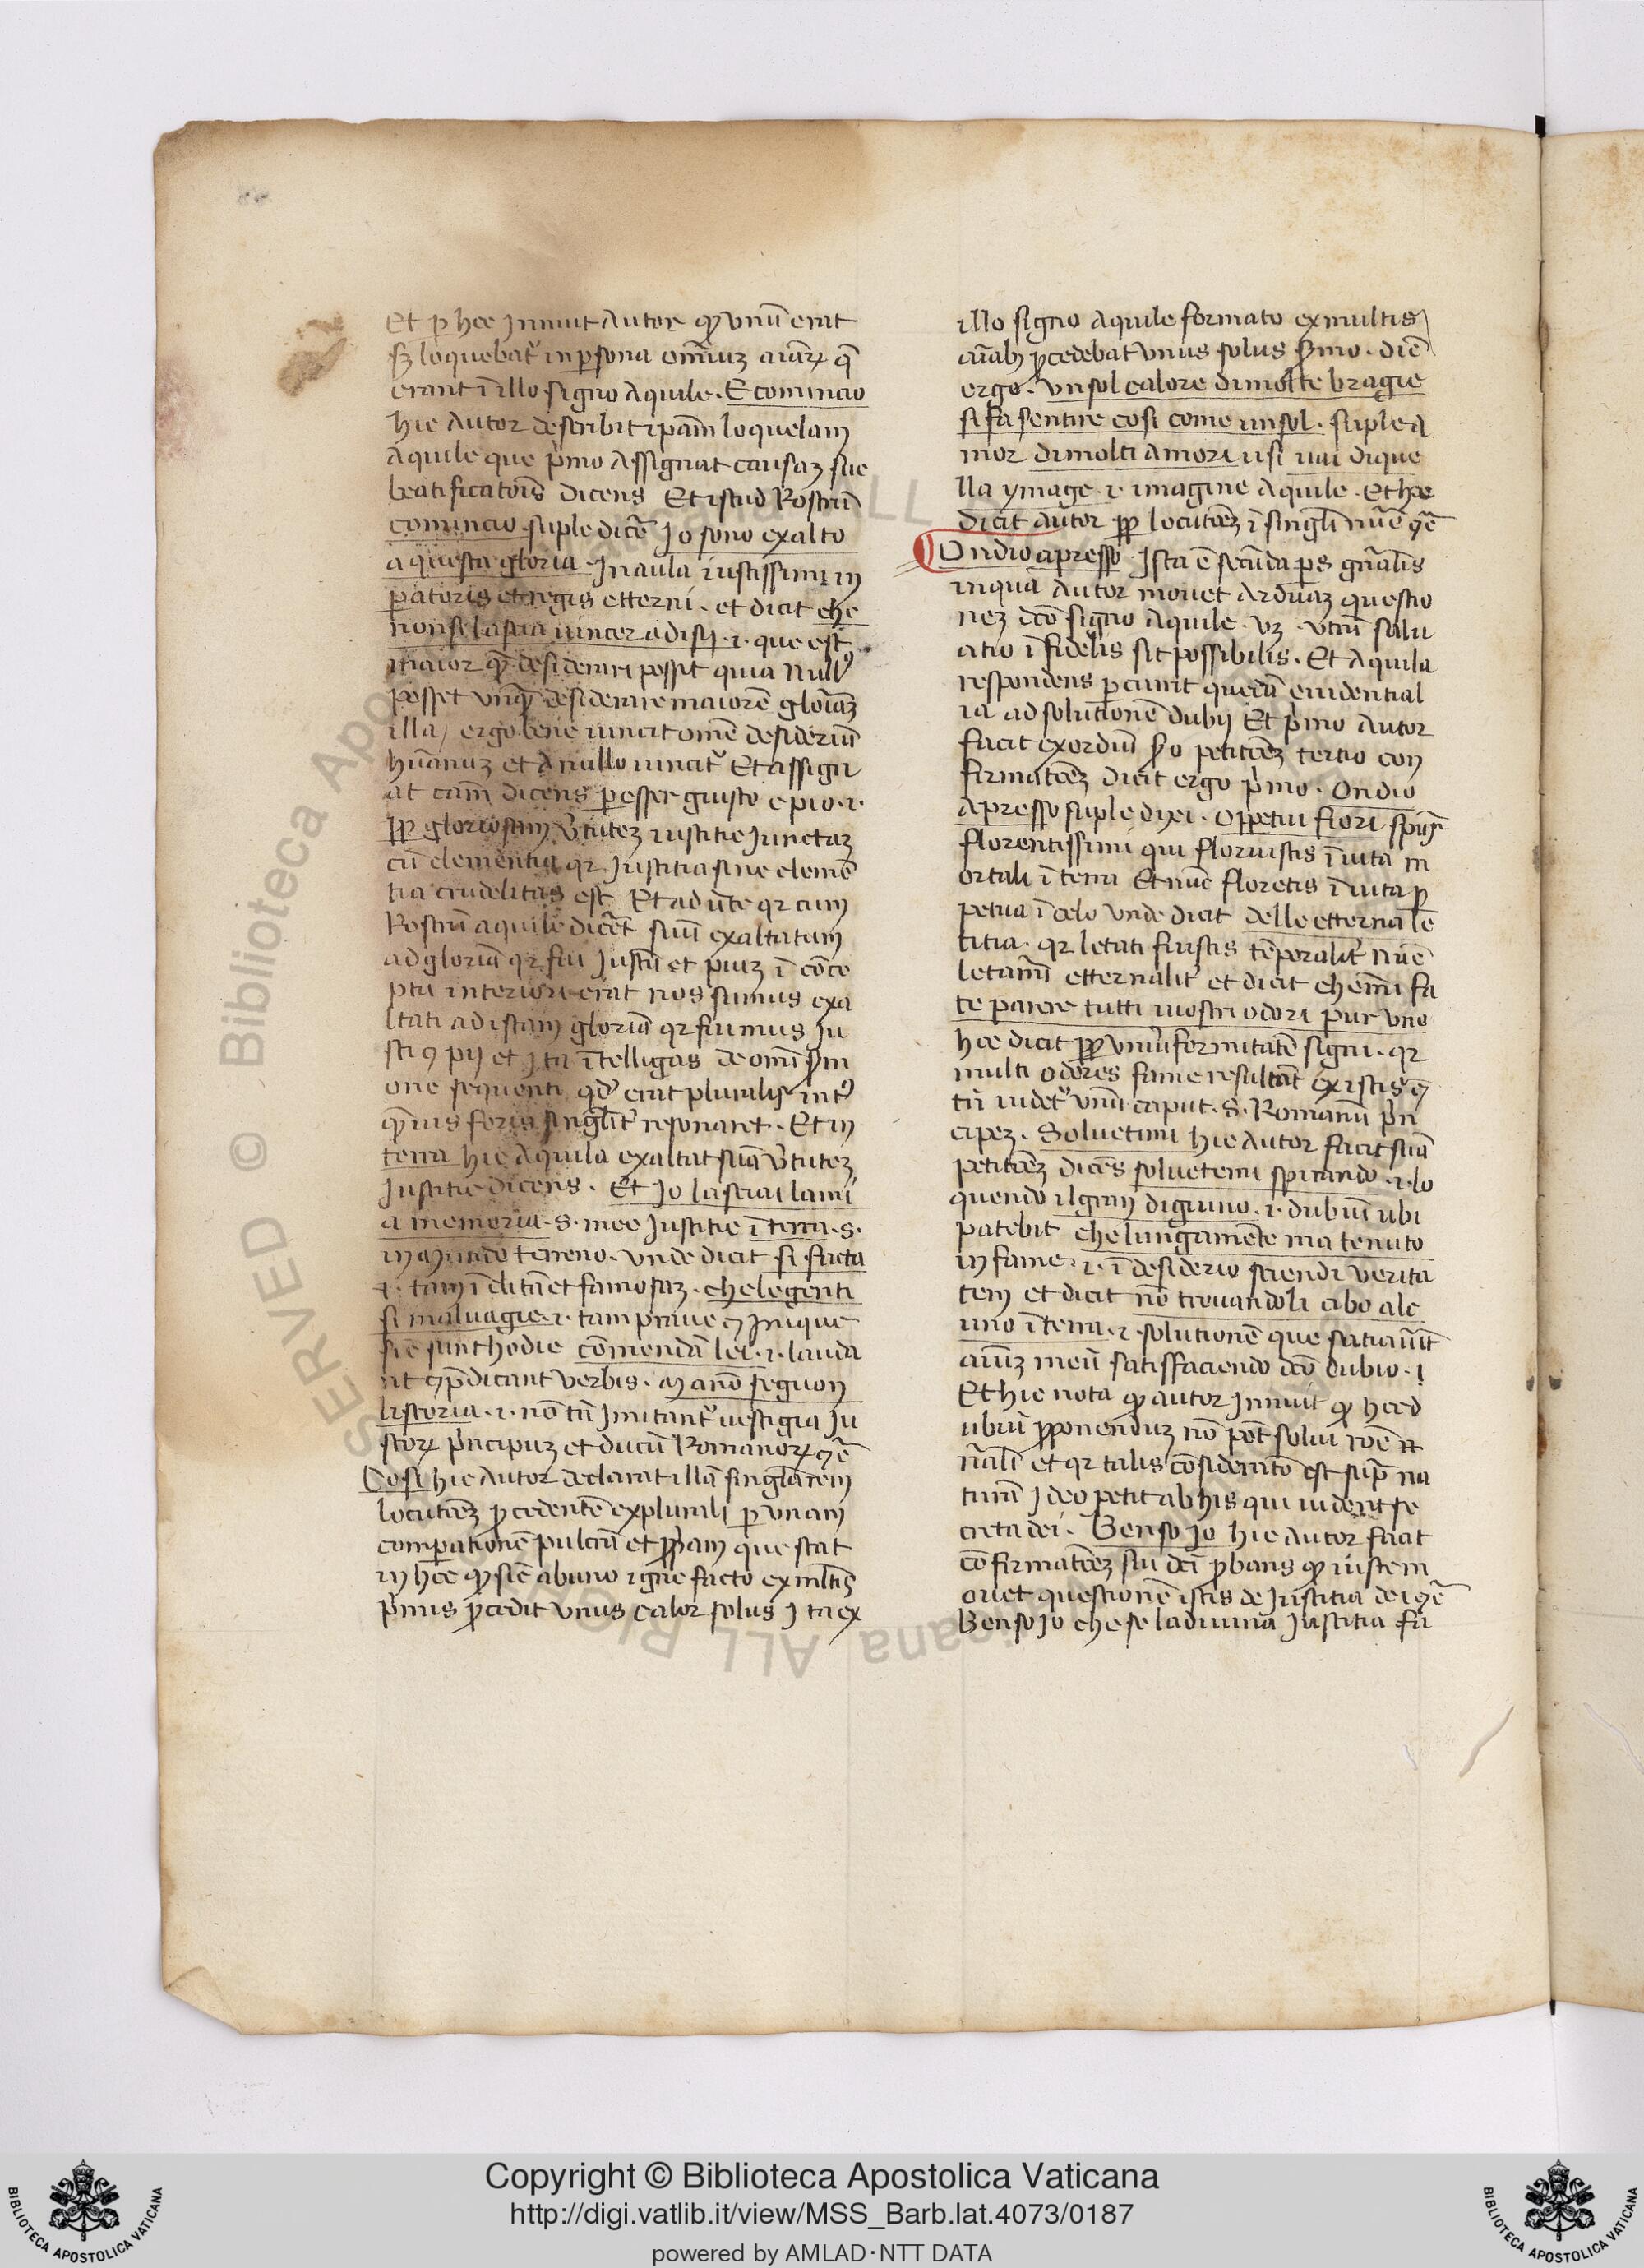 Et p hec Innuit Autor qͥ vnū erat
sꝫ loquebatᷣ in psona omniuꝫ aīaꝝ q̄
erant ī illo signo Aquile . E comincio
hic Autor describit ipām loquelam
Aquile que pͥmo Assignat causaꝫ sue
beatificatōis dicens Et istud Rostrū
comincio suple dicē Jo sono exalto
a questa gloria . In aula iustissimi im
patoris et regis etterni . et dicit che
non si lascia uincer a disii .i. que est
maior q̄ desiderari possit quia null9
posset vnq̄ desiderare maiorē gloīaꝫ
illa / ergo bene uincit omē desideriū
hūanuꝫ et A nullo uincitᷣ Et assign
at cām dicens p esser giusto e pio .i.
ꝓp gloriosam v̄tuteꝫ iustitie Junctaꝫ
cū clementia qꝛ Justitia sine clemē
tia crudelitas est Et aduūte qꝛ cum
Rostrū aquile dicēt suū exaltatum
ad gloriā qꝛ fui Justū et piuꝫ ī cōce
ptu interiori erat nos sumus exa
ltati ad istam gloriā qꝛ fuimus Ju
sti ꝯ pij et Jta ītelligas de omī s̄m
one sequenti qd̓ erat pluralit int9
q̄uis foris singlit̄ resonaret . Et in
terra hic Aquila exaltat suā v̄tuteꝫ
Justitie dicens . Et Jo lasciai la mi
a memoria .S. mee Justitie ī terra .S.
in mundo terreno . vnde dicit si facta
.i. tam īclitā et famosaꝫ . che le genti
si maluagie .i. tam praue ꝯ Jnique
sic sunt hodie cōmendā lei .i. lauda
nt ꝯ p̄dicant verbis . m anō seguon
listoria .i. nō tn̄ Jmitantᷣ uestigia Ju
stoꝝ pͥncipuꝫ et ducū Romanoꝝ ꝯē
Cosi hic Autor declarat illā singlarem
locutōeꝫ ꝓcedentē ex plurali p vnam
compationē pulcrā et ꝓpam que stat
in hoc qͥ sic ab uno igne facto ex mltis
pͥnis ꝓcedit vnus calor solus Jta ex
illo signo Aquile formato ex multis
aīabꝫ ꝓcedebat vnus solus s̄mo . diē
ergo . vn sol calore di molte bragie
si fa sentire cosi come un sol . suple A
mor di molti Amori usi uai di que
lla ymage .i. imagine Aquile . Et hoc
dicit autor ꝓp locutōeꝫ ī singli nūe ꝯē
Ondio apresso . Ista ē secūda ps gn̄alis
in qua Autor mouet Arduaꝫ questio
neꝫ dco signo Aquile . vꝫ . vtrū salu
atio īfidelis sit possibilis . Et Aquila
respondens pcurit quedā euidential
ia ad solutionē dubij Et pͥmo Autor
facit exordiū s̄o petitōeꝫ tertio con
firmatōeꝫ dicit ergo pͥmo . Ondio
Apresso suple dixi . O ppetui fiori spūs
florentissimi qui floruistis ī uita m
ortali ī terra Et nūc floretis ī uita p
petua ī celo vnde dicit delle etterna le
titia . qꝛ letati fuistis tēporalit̄ nūc
letamī etternalit̄ et dicit che mi fa
te parere tutti uostri odori pur vno
hoc dicit ꝓp vniuformitatē signi . qꝛ
multi odores fame resultāt ex istis ꝯ
tn̄ uidetᷣ vnū caput .S. Romanū pͥn
cipeꝫ . Soluetimi hic Autor facit suā
petitōeꝫ dicēs soluetemi spirando .i. lo
quendo il gran digiuno .i. dubium ubi
patebit che lungamēte ma tenuto
in fame .i. ī desiderio sciendi verita
tem et dicit nō trouandoli cibo alc
uno ī terra .i. solutionē que satiauit
aīuꝫ meū satisfaciendo dco dubio . i
Et hic nota qͥ autor Innuit qͥ hoc d
ubiū ꝓponenduꝫ nō pōt solui rōe n
r̄ali et qꝛ talis cōsideratō est sup na
turā Jdeo petit ab his qui uident se
creta dei . Ben so Jo hic Autor facit
cōfirmatōeꝫ sui dcī ꝓbans qͥ iuste m
ouet questionē istis de Justitia dei ꝯē
Ben so Jo che se la diuina Justitia fa
Copyright © Biblioteca Apostolica Vaticana
http://digi.vatlib.it/view/MSS_Barb.lat.4073/0187
powered by AMLAD·NTT DATA